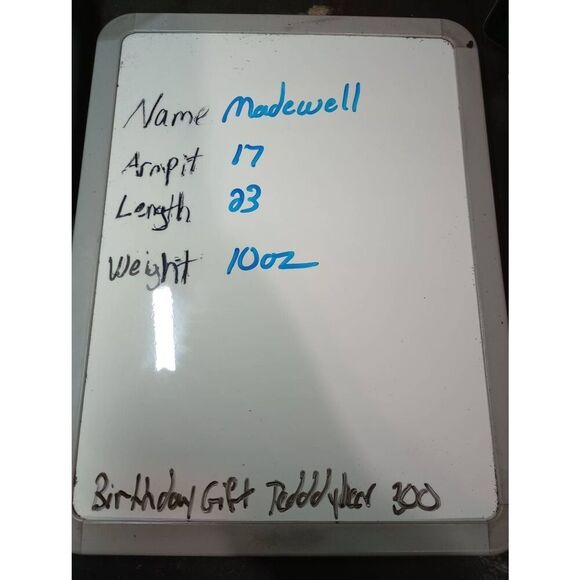 Name Madewell
Armpit 17
Length 23
Weight 10oz
Birthday Gift Tedddybear 300